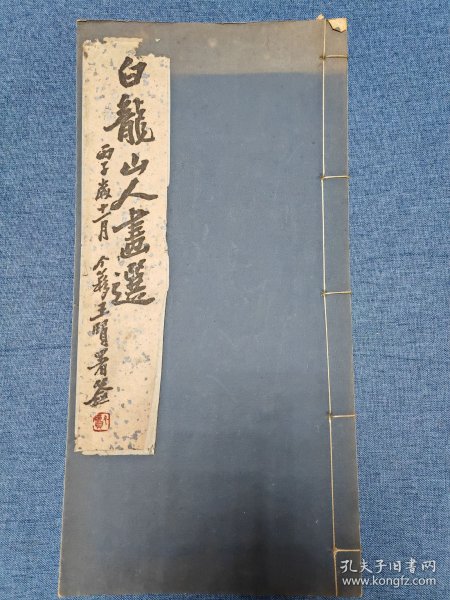 白龍山人畫選
丙子歲十一月 个簃王賢署簽
孔夫子旧书网
www.kongfz.com